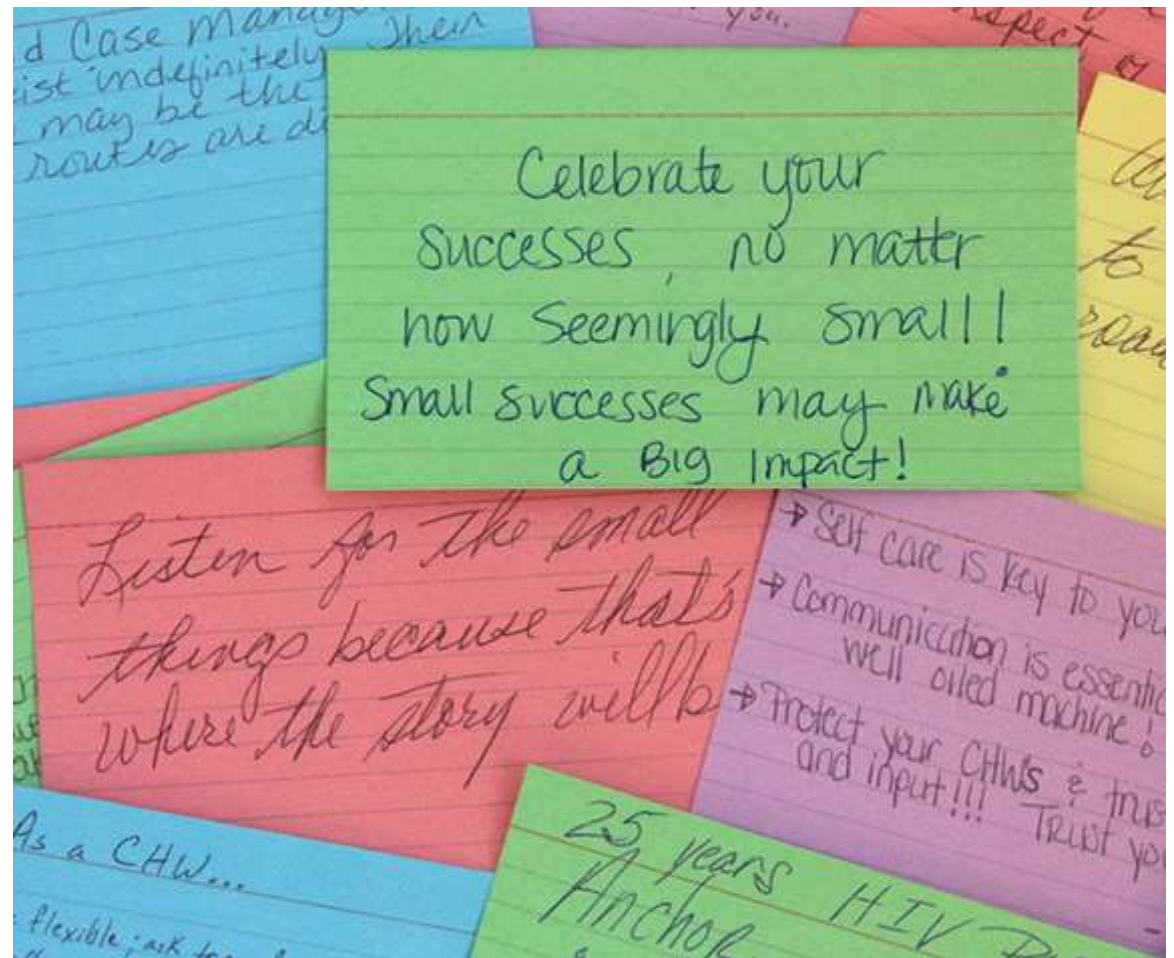 d Case Manag
ist indefinitely. Their
may be the
routes are di
you.
spect
Celebrate your
successes, no matter
how seemingly small!!
Small successes may make
a Big Impact!
to
road
Listen for the small
things because that's
where the story will b
→ Self care is key to you
→ Communication is essentic
well oiled machine!
→ Protect your CHWs & trus
and input!!! TRUST yo
As a CHW...
flexible; ask
25 years HIV
Anchor